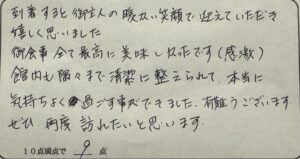 到着すると御主人の暖かい笑顔で迎えていただき
嬉しく思いました
御食事全て最高に美味しかったです(感激)
館内も隅々まで清潔に整えられて、本当に
気持ちよく過ごす事ができました。有難うございます。
ぜひ、再度訪れたいと思います。
10点満点で 9 点